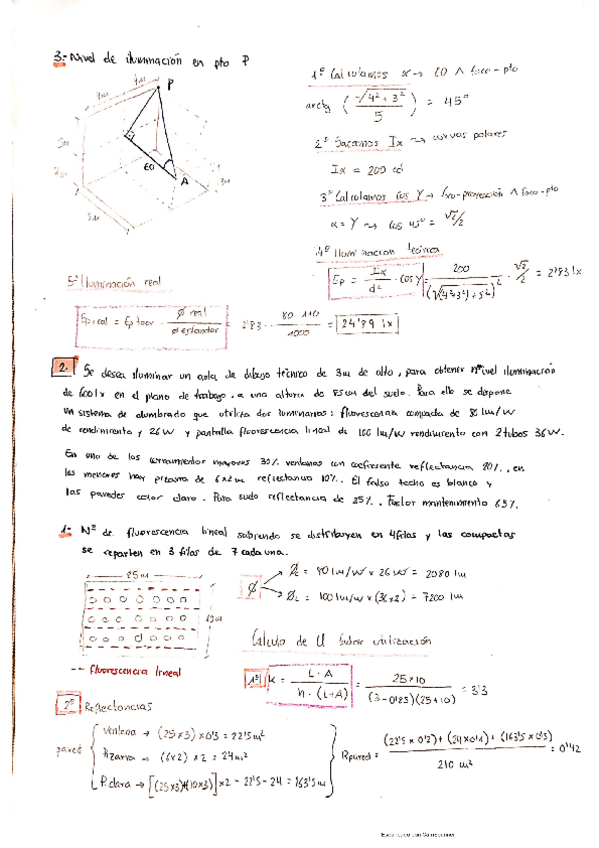 3.- Nivel de iluminación en pto P
P
4m
3m
5m
60
A
1º Calculamos α → 60 ∧ foco-pto
arctg (√4²+3² / 5) = 45º
2º Sacamos Iα → curvas polares
Iα = 200 cd
3º Calculamos cos γ → foco-proyección ∧ foco-pto
α = γ → cos 45º = √2/2
4º Iluminación teórica
Ep = Iα / d² · cos γ = 200 / (√(4²+3²)+5²)² · √2/2 = 2'83 lx
5º Iluminación real
Ep real = Ep teor · Ø real / Ø estandar = 2'83 · 80 110 / 1000 = 24'89 lx
2. Se desea iluminar un aula de dibujo técnico de 3m de alto, para obtener nivel iluminación
de 600 lx en el plano de trabajo, a una altura de 85cm del suelo. Para ello se dispone
un sistema de alumbrado que utiliza dos luminarias: fluorescencia compacta de 80 lm/W
de rendimiento y 26W y pantalla fluorescencia lineal de 100 lm/W rendimiento con 2 tubos 36W.
En uno de los cerramientos mayores 30% ventanas con coeficiente reflectancia 20%, en
las menores hay pizarra de 6x2m reflectancia 10%. El falso techo es blanco y
las paredes color claro. Para suelo reflectancia de 25%. Factor mantenimiento 65%.
1- Nº de fluorescencia lineal sabiendo se distribuyen en 4 filas y las compactas
se reparten en 3 filas de 7 cada una.
25m
10m
-- fluorescencia lineal
Ø
Øc = 80 lm/W × 26W = 2080 lm
ØL = 100 lm/W × (36×2) = 7200 lm
Cálculo de U factor utilización
1º K = L·A / h·(L+A) = 25×10 / (3-0'85)(25+10) = 3'3
2º Reflectancias
pared
Ventana → (25×3)×0'3 = 22'5 m²
Pizarra → (6×2)×2 = 24 m²
P. clara → [(25×3)+(10×3)]×2 - 22'5 - 24 = 163'5 m
Rpared = (22'5×0'2)+(24×0'1)+(163'5×0'5) / 210 m² = 0'42
Escaneado con CamScanner